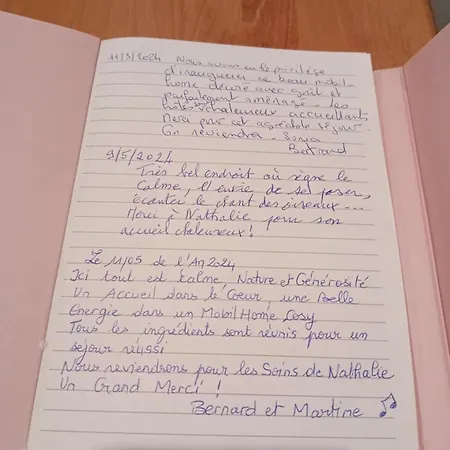 11/3/2024 Nous avons eu le privilège
d'inaugurer ce beau mobil-
home décoré avec goût et
parfaitement aménagé - les
hôtes chaleureux accueillants
Merci pour cet agréable séjour.
On reviendra - Sonja
Bertrand
9/5/2024
Très bel endroit où règne le
Calme, l'envie de se poser,
écouter le chant des oiseaux ...
Merci à Nathalie pour son
accueil chaleureux !
Le 11/05 de l'An 2024
Ici tout est Calme, Nature et Générosité
Un Accueil dans le Coeur, une Belle
Energie dans un Mobil Home Cosy
Tous les ingrédients sont réunis pour un
séjour réussi
Nous reviendrons pour les Soins de Nathalie
Un Grand Merci !
Bernard et Martine